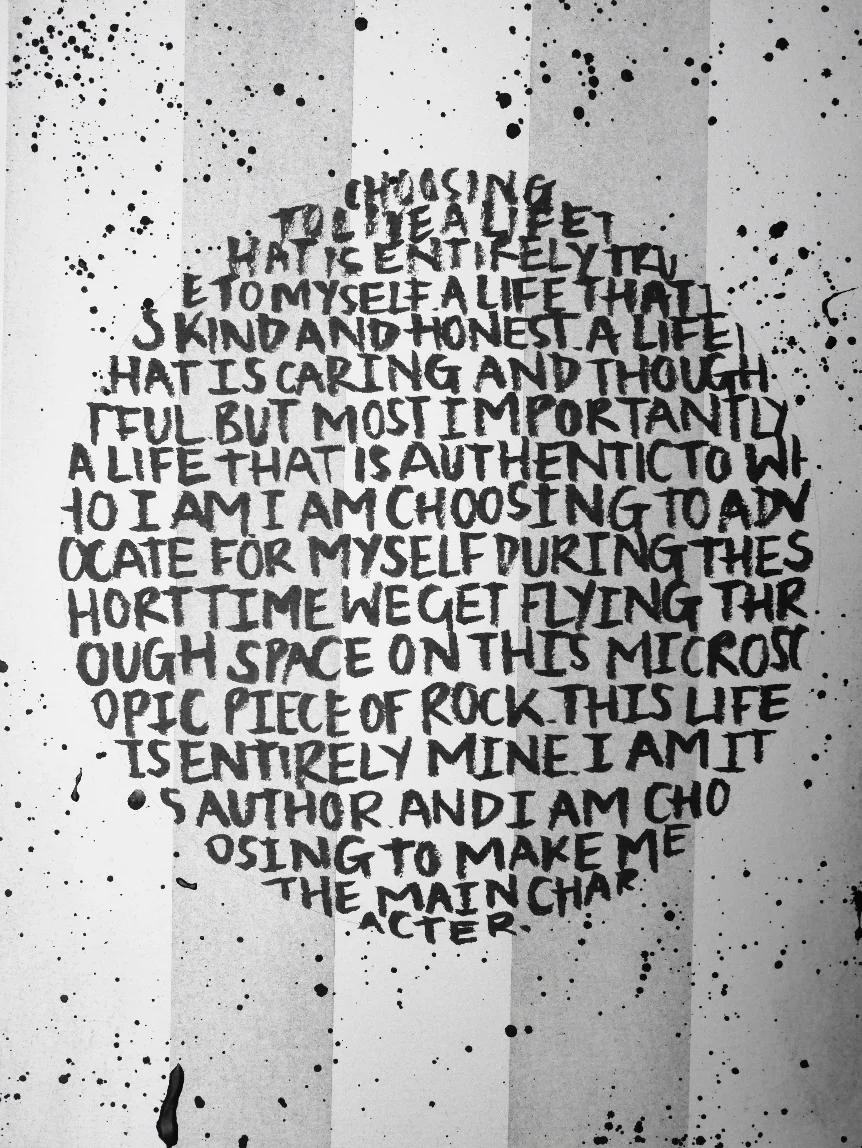 CHOOSING
TO LIVE A LIFE T
HAT IS ENTIRELY TRU
E TO MYSELF. A LIFE THAT I
S KIND AND HONEST. A LIFE T
HAT IS CARING AND THOUGH
TFUL. BUT MOST IMPORTANTLY
A LIFE THAT IS AUTHENTIC TO WH
HO I AM I AM CHOOSING TO ADV
OCATE FOR MYSELF DURING THE S
HORT TIME WE GET FLYING THR
OUGH SPACE ON THIS MICROSC
OPIC PIECE OF ROCK. THIS LIFE
IS ENTIRELY MINE. I AM IT
S AUTHOR AND I AM CHO
OSING TO MAKE ME
THE MAIN CHAR
ACTER.